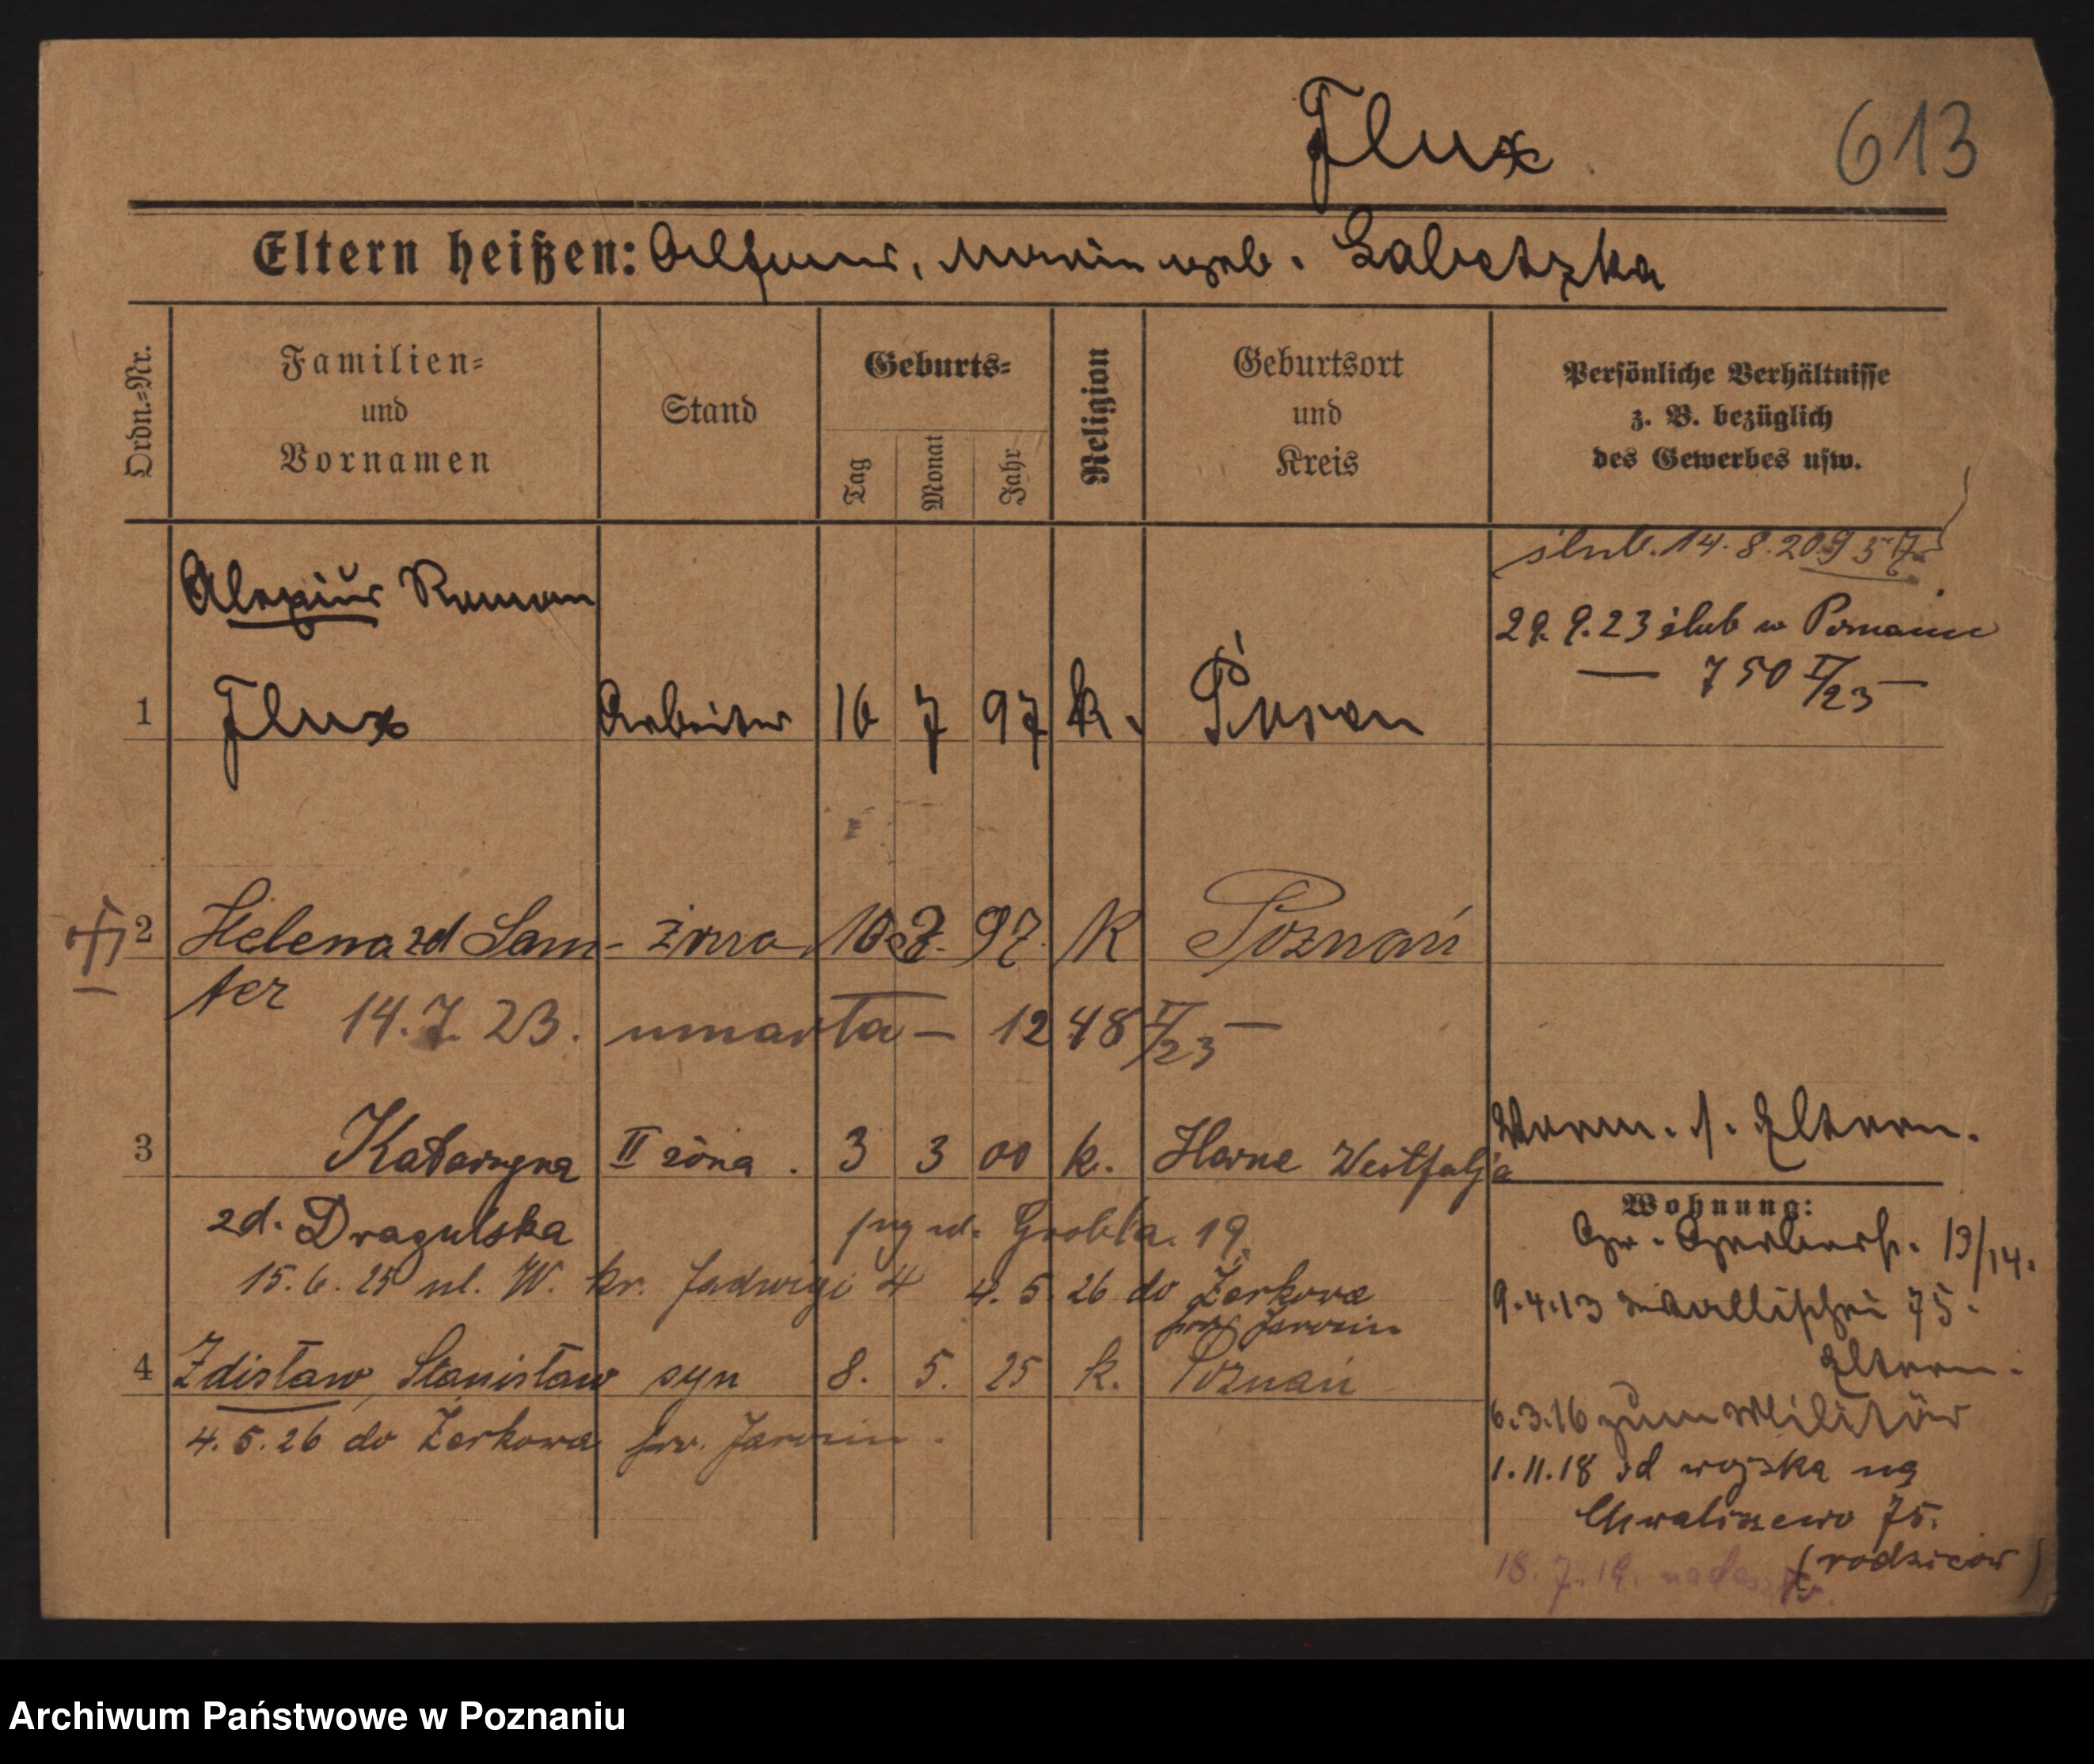 Flux
613
Eltern heißen: Alfons, Maria geb. Labetzka
Ordn.-Nr.
Familien-
und
Vornamen
Stand
Geburts-
Tag
Monat
Jahr
Religion
Geburtsort
und
Kreis
Persönliche Verhältnisse
z. B. bezüglich
des Gewerbes usw.
ślub. 14.8.20 957
Alexius Roman
29.9.23 ślub w Poznaniu
— 750 II/23 —
1 Flux Arbeiter 16 7 97 k. Posen
2 Helena zd Sam- żona 10 2. 97. K Poznań
ter 14.7.23. umarła — 1248 II/23 —
3 Katarzyna II żona. 3 3 00 k. Herne Westfalja
Verm. s. Eltern.
zd. Dragulska Grobla. 19
Wohnung:
Gr. Gerberstr. 13/14.
15.6.25 ul. W. kr. Jadwigi 4 4.5.26 do Żerkowa
pow Jarocin
9.4.13 Wallischei 75.
Eltern.
4 Zdisław, Stanisław syn 8. 5. 25 k. Poznań
4.5.26 do Żerkowa pow. Jarocin.
6.3.16 zum Militär
1.11.18 od wojska na
Chwaliszewo 75.
(rodziców)
18.7.19.
Archiwum Państwowe w Poznaniu